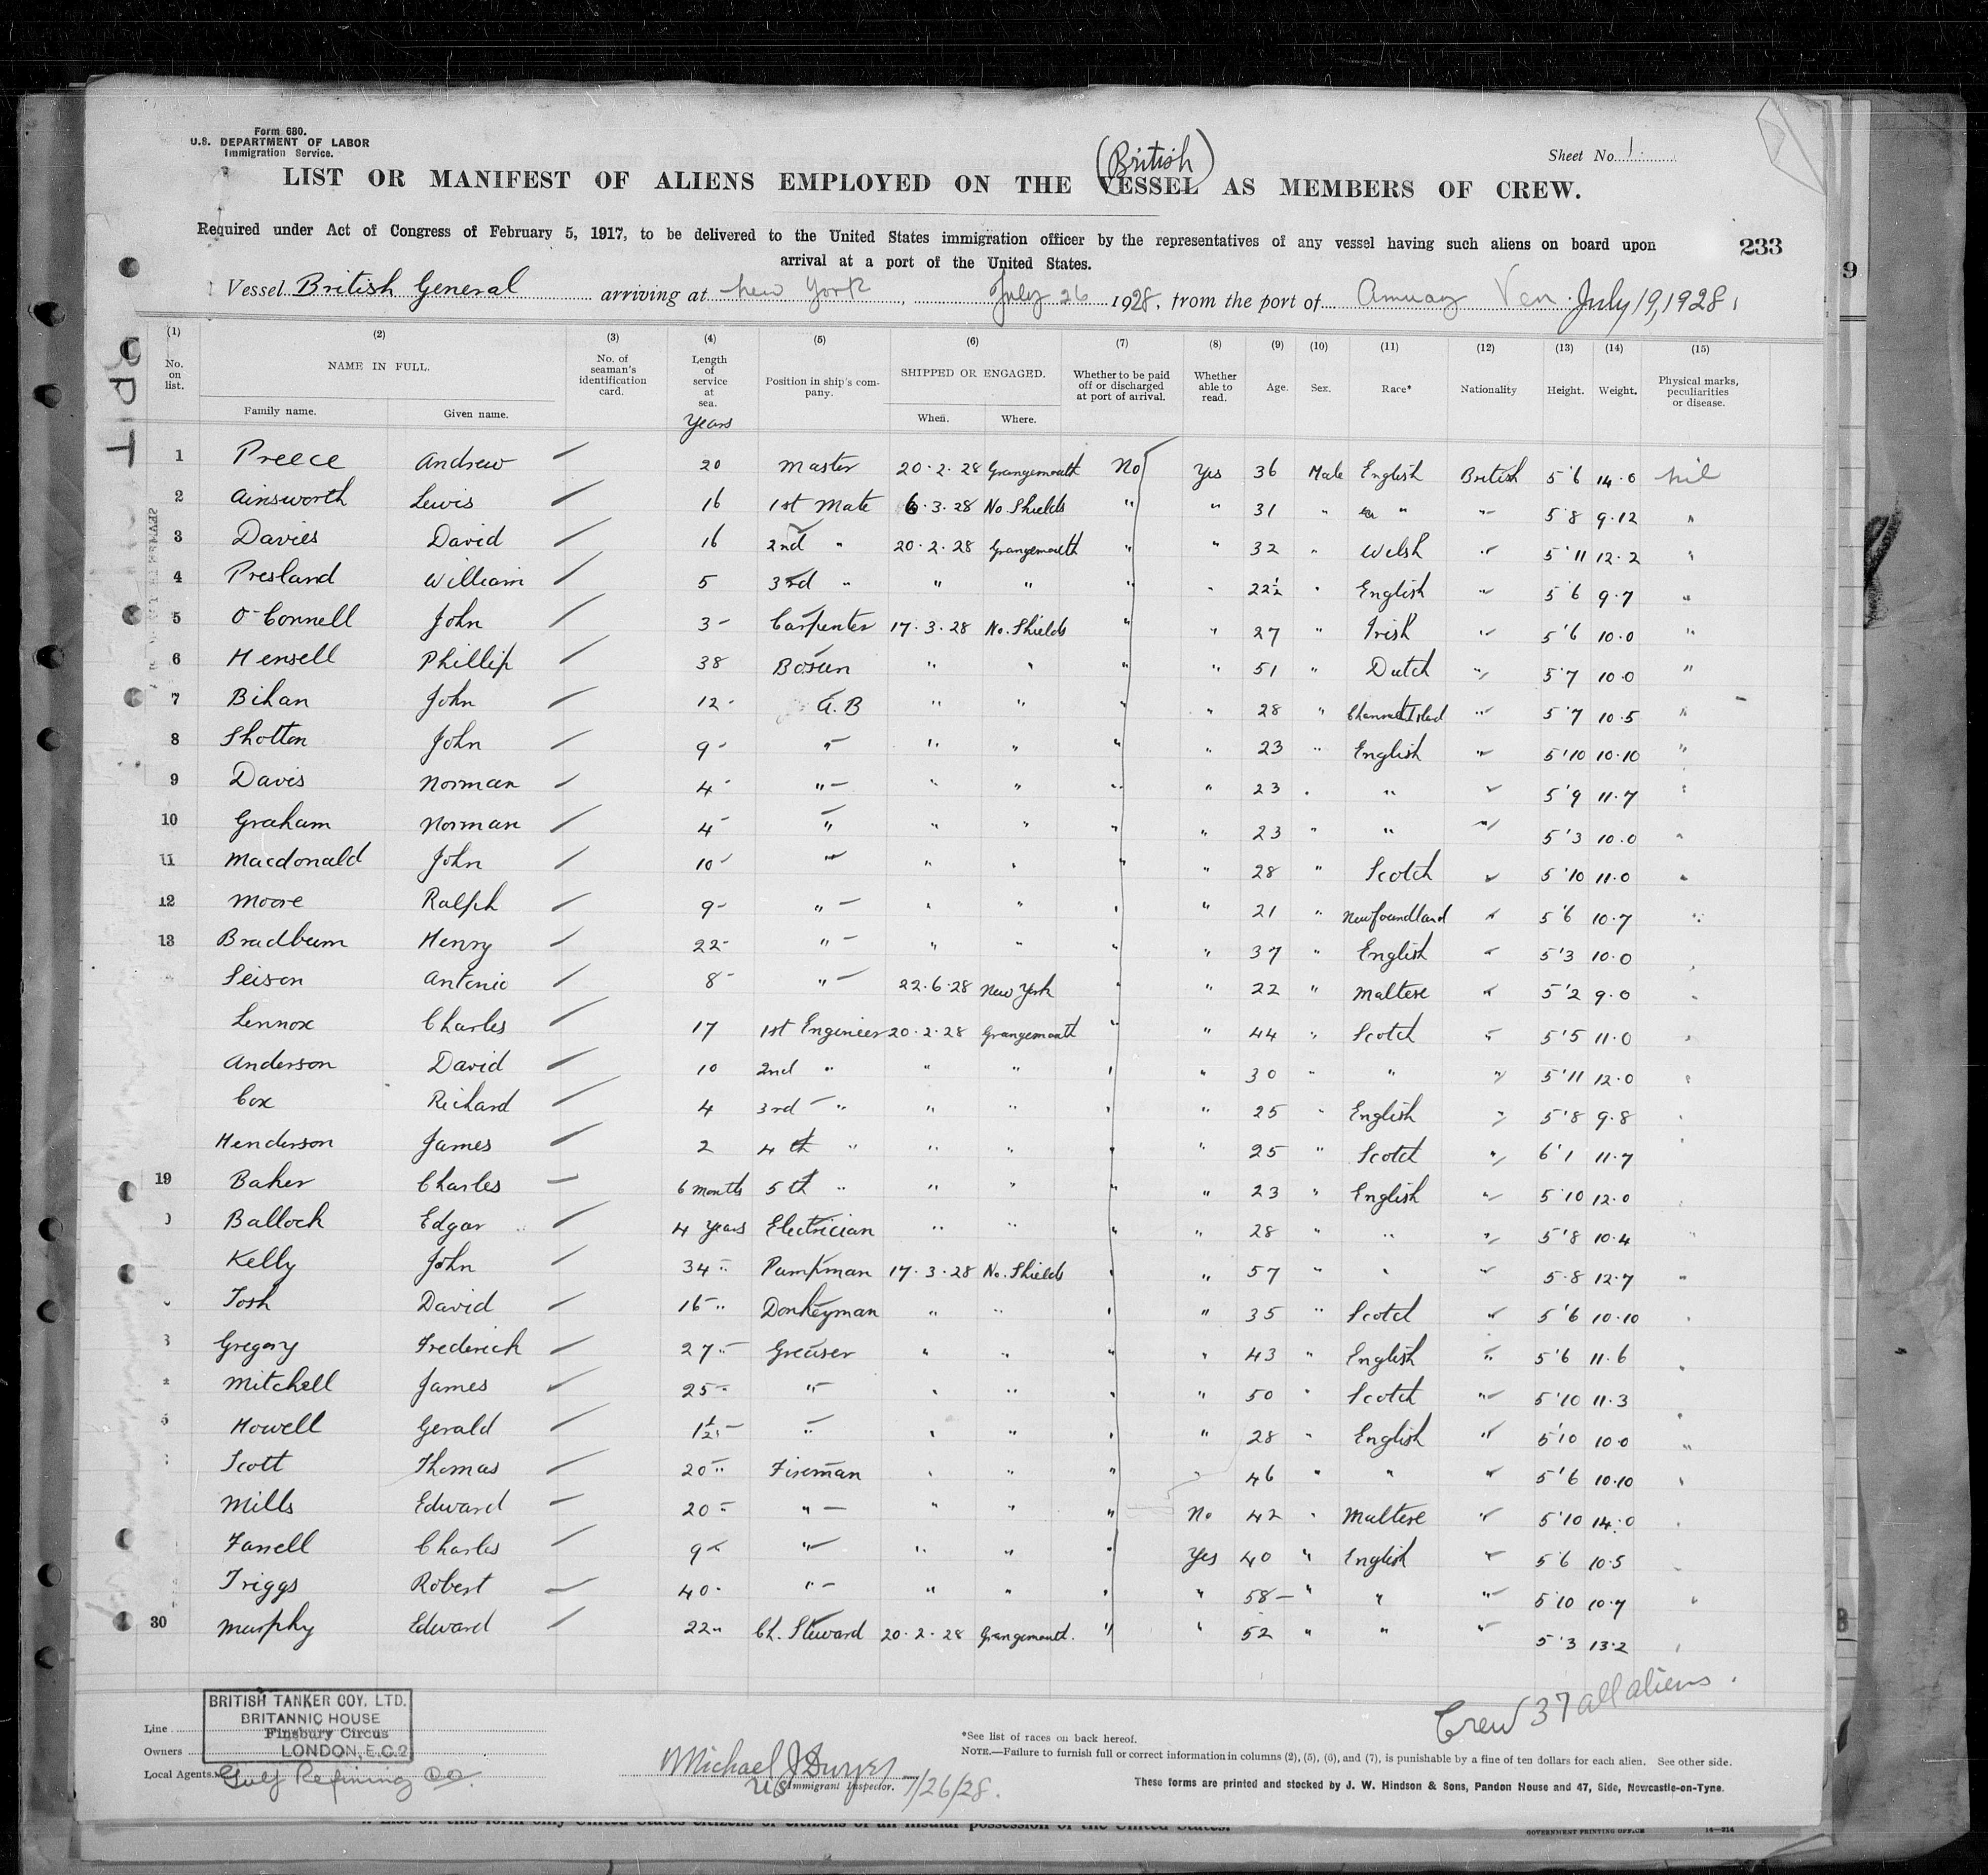 Form 680.
U.S. DEPARTMENT OF LABOR
Immigration Service.
Sheet No. 1.
(British)
LIST OR MANIFEST OF ALIENS EMPLOYED ON THE VESSEL AS MEMBERS OF CREW.
Required under Act of Congress of February 5, 1917, to be delivered to the United States immigration officer by the representatives of any vessel having such aliens on board upon
arrival at a port of the United States.
233
9
Vessel British General arriving at New York, July 26 1928, from the port of Amuay Ven. July 19, 1928
(1) (2) (3) (4) (5) (6) (7) (8) (9) (10) (11) (12) (13) (14) (15)
No. on list. NAME IN FULL. Family name. Given name. No. of seaman's identification card. Length of service at sea. Years Position in ship's company. SHIPPED OR ENGAGED. When. Where. Whether to be paid off or discharged at port of arrival. Whether able to read. Age. Sex. Race* Nationality Height. Weight. Physical marks, peculiarities or disease.
1 Preece Andrew 20 Master 20.2.28 Grangemouth No Yes 36 Male English British 5'6 14.0 nil
2 Ainsworth Lewis 16 1st Mate 6.3.28 No. Shields " " 31 " " " 5'8 9.12 "
3 Davies David 16 2nd " 20.2.28 Grangemouth " " 32 " Welsh " 5'11 12.2 "
4 Presland William 5 3rd " " " " " 22½ " English " 5'6 9.7 "
5 O'Connell John 3 Carpenter 17.3.28 No. Shields " " 27 " Irish " 5'6 10.0 "
6 Hensell Phillip 38 Bosun " " " " 51 " Dutch " 5'7 10.0 "
7 Bihan John 12 A.B " " " " 28 " Channel Island " 5'7 10.5 "
8 Shotton John 9 " " " " " 23 " English " 5'10 10.10 "
9 Davis Norman 4 " " " " " 23 " " " 5'9 11.7 "
10 Graham Norman 4 " " " " " 23 " " " 5'3 10.0 "
11 Macdonald John 10 " " " " " 28 " Scotch " 5'10 11.0 "
12 Moore Ralph 9 " " " " " 21 " Newfoundland " 5'6 10.7 "
13 Bradburn Henry 22 " " " " " 37 " English " 5'3 10.0 "
Seison Antonio 8 " 22.6.28 New York " " 22 " Maltese " 5'2 9.0 "
Lennox Charles 17 1st Engineer 20.2.28 Grangemouth " " 44 " Scotch " 5'5 11.0 "
Anderson David 10 2nd " " " " " 30 " " " 5'11 12.0 "
Cox Richard 4 3rd " " " " " 25 " English " 5'8 9.8 "
Henderson James 2 4th " " " " " 25 " Scotch " 6'1 11.7 "
19 Baker Charles 6 months 5th " " " " " 23 " English " 5'10 12.0 "
Ballock Edgar 4 Years Electrician " " " " 28 " " " 5'8 10.4 "
Kelly John 34 " Pumpman 17.3.28 No. Shields " " 57 " " " 5.8 12.7 "
Tosh David 16 " Donkeyman " " " " 35 " Scotch " 5'6 10.10 "
Gregory Frederick 27 " Greaser " " " " 43 " English " 5'6 11.6 "
Mitchell James 25 " " " " " " 50 " Scotch " 5'10 11.3 "
Howell Gerald 1½ " " " " " 28 " English " 5'10 10.0 "
Scott Thomas 20 " Fireman " " " " 46 " " " 5'6 10.10 "
Mills Edward 20 " " " " " No 42 " Maltese " 5'10 14.0 "
Farrell Charles 9 " " " " " Yes 40 " English " 5'6 10.5 "
Triggs Robert 40 " " " " " 58 " " " 5'10 10.7 "
30 Murphy Edward 22 " Ch. Steward 20.2.28 Grangemouth. " " 52 " " " 5'3 13.2 "
Crew 37 all aliens.
BRITISH TANKER COY. LTD.
BRITANNIC HOUSE
Finsbury Circus
LONDON, E.C.2
Line
Owners
Local Agents. Gulf Refining Co.
Michael J Dwyer
US Immigrant Inspector. 7/26/28.
*See list of races on back hereof.
NOTE.—Failure to furnish full or correct information in columns (2), (5), (6), and (7), is punishable by a fine of ten dollars for each alien. See other side.
These forms are printed and stocked by J. W. Hindson & Sons, Pandon House and 47, Side, Newcastle-on-Tyne.
on this form only United States citizens or citizens of an insular possession of the United States.
GOVERNMENT PRINTING OFFICE
14—214